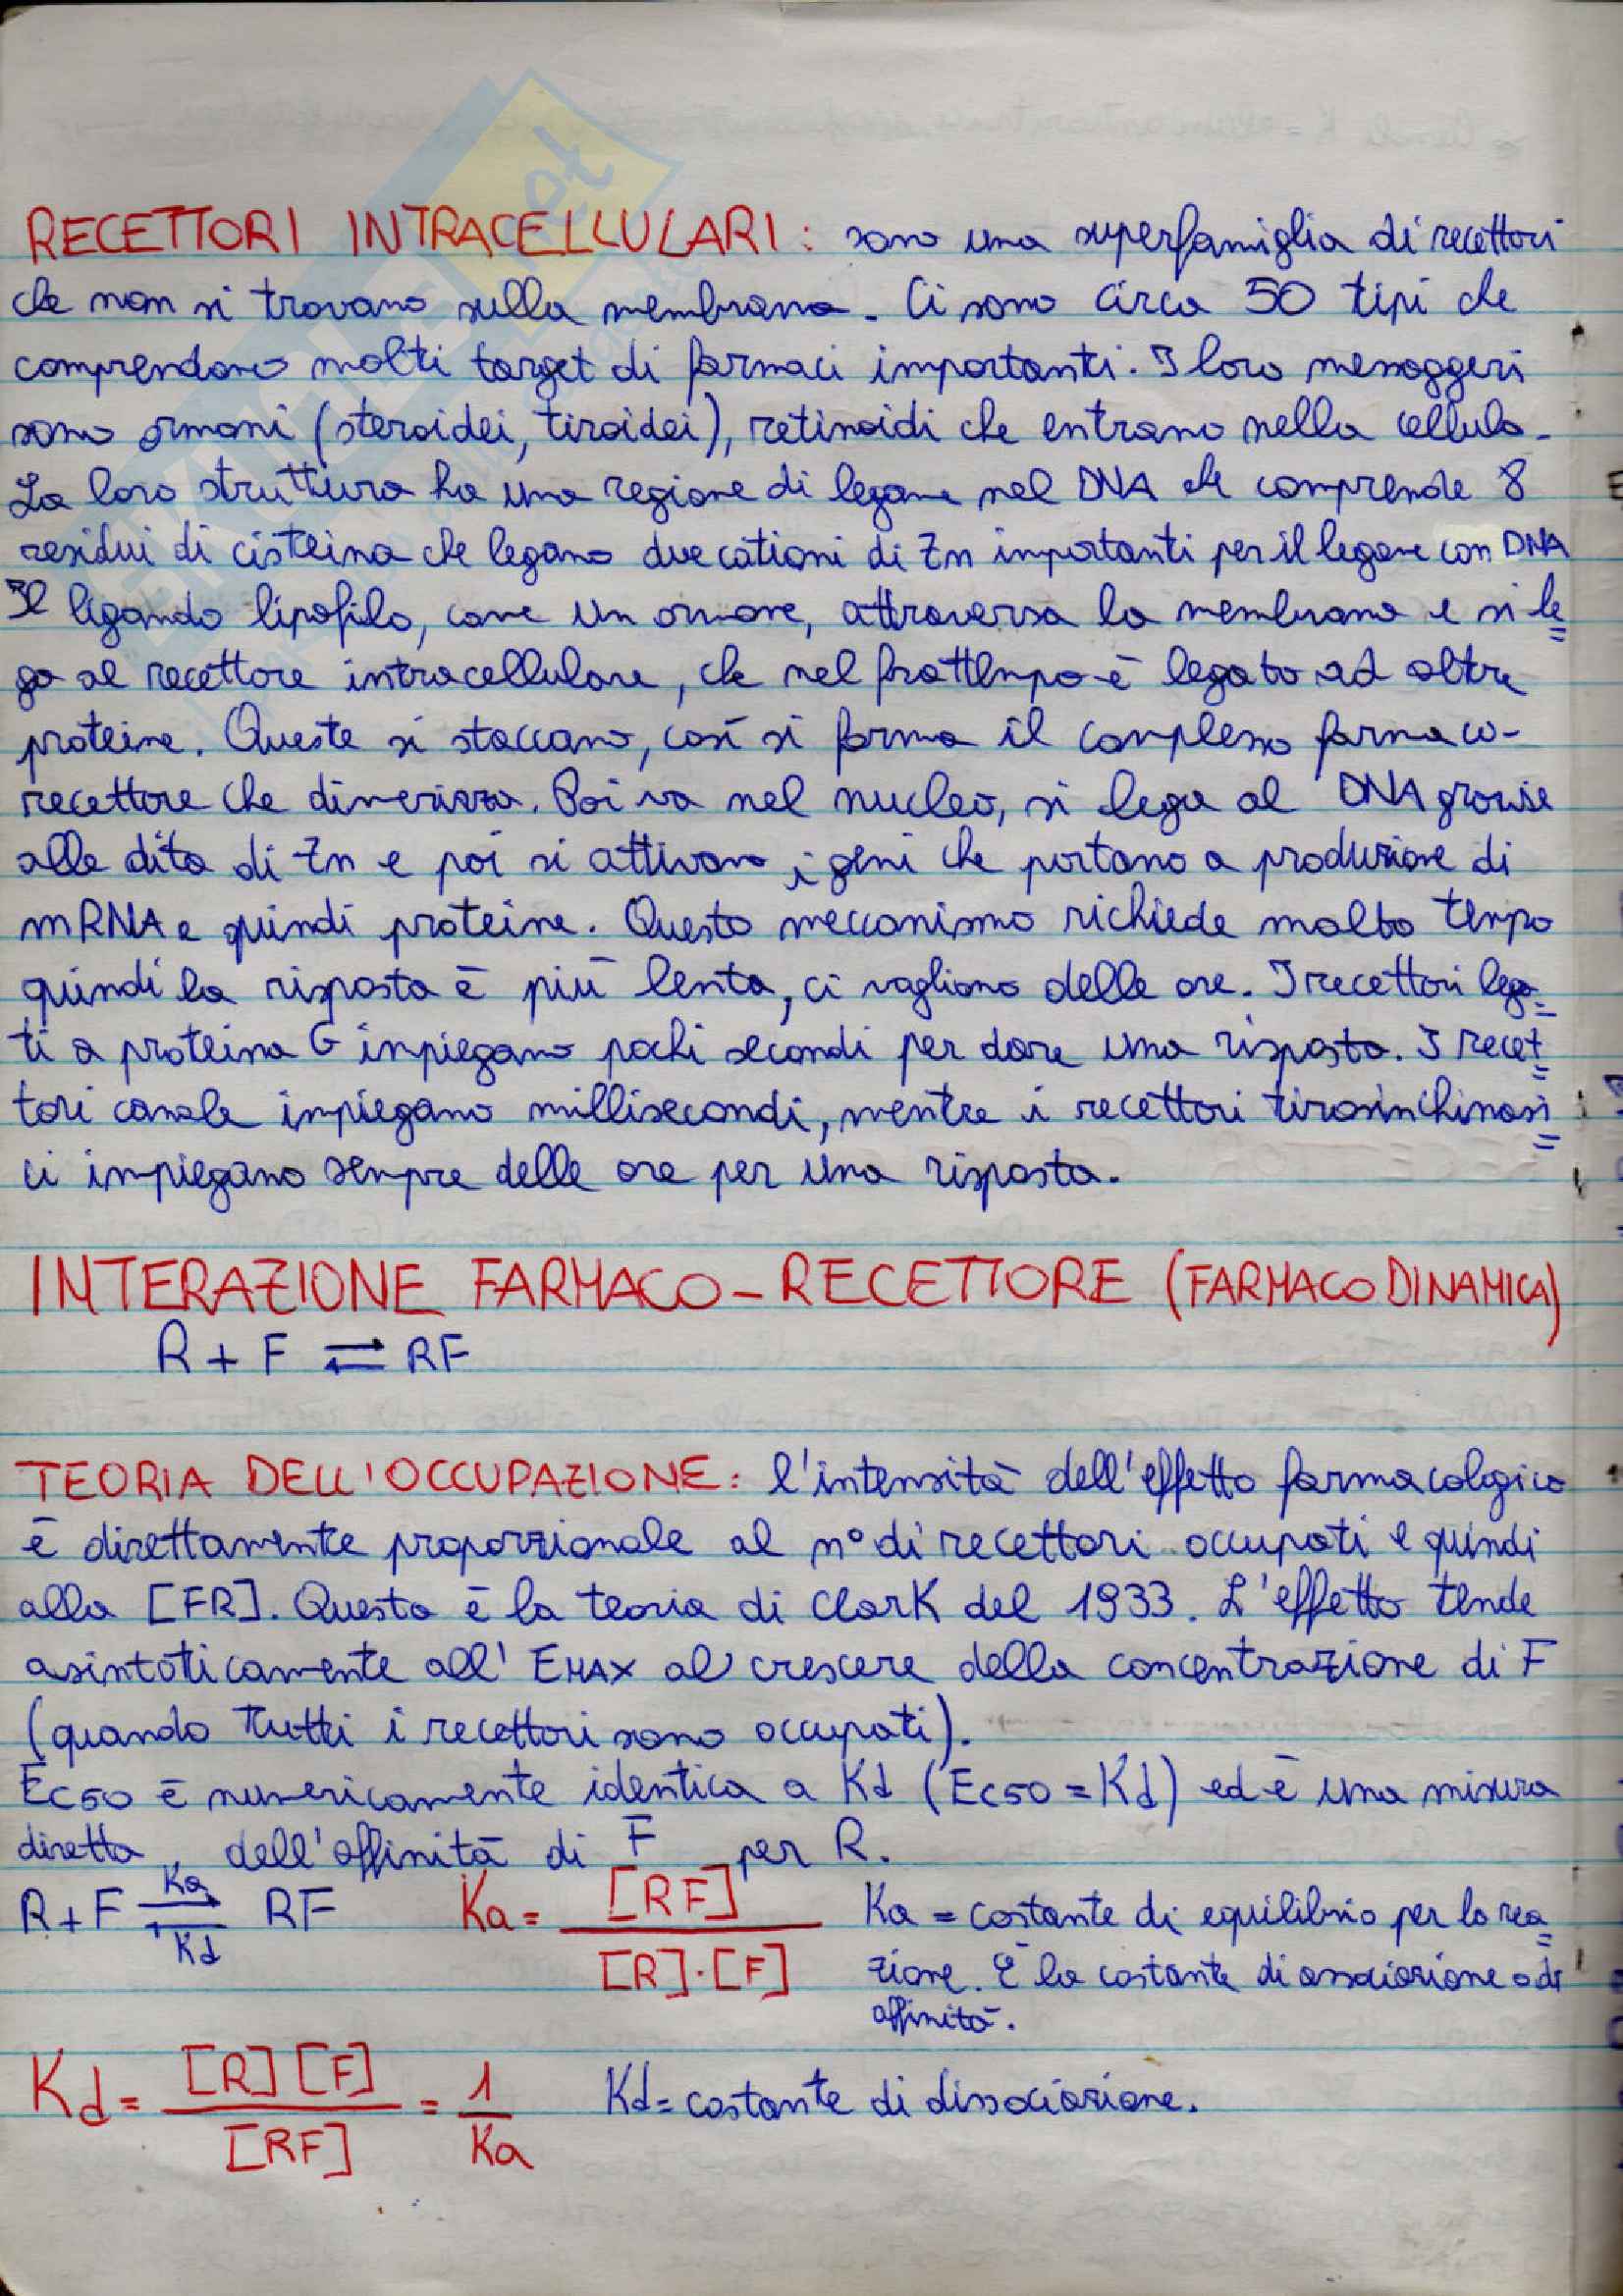 RECETTORI INTRACELLULARI: sono una superfamiglia di recettori
che non si trovano sulla membrana. Ci sono circa 50 tipi che
comprendono molti target di farmaci importanti. I loro messaggeri
sono ormoni (steroidei, tiroidei), retinoidi che entrano nella cellula.
La loro struttura ha una regione di legame nel DNA che comprende 8
residui di cisteina che legano due cationi di Zn importanti per il legame con DNA
Il ligando lipofilo, come un ormone, attraversa la membrana e si le=
ga al recettore intracellulare, che nel frattempo è legato ad altre
proteine. Queste si staccano, così si forma il complesso farmaco-
recettore che dimerizza. Poi va nel nucleo, si lega al DNA grazie
alle dita di Zn e poi si attivano i geni che portano a produzione di
mRNA e quindi proteine. Questo meccanismo richiede molto tempo
quindi la risposta è più lenta, ci vogliono delle ore. I recettori lega=
ti a proteina G impiegano pochi secondi per dare una risposta. I recet=
tori canale impiegano millisecondi, mentre i recettori tirosinchinasi=
ci impiegano sempre delle ore per una risposta.
INTERAZIONE FARMACO-RECETTORE (FARMACODINAMICA)
R + F ⇄ RF
TEORIA DELL'OCCUPAZIONE: l'intensità dell'effetto farmacologico
è direttamente proporzionale al n° di recettori occupati e quindi
alla [FR]. Questa è la teoria di Clark del 1933. L'effetto tende
asintoticamente all' EMAX al crescere della concentrazione di F
(quando tutti i recettori sono occupati).
EC50 è numericamente identica a Kd (EC50 = Kd) ed è una misura
diretta dell'affinità di F per R.
R+F ⇄ RF Ka Kd Ka = [RF] / [R]·[F] Ka = costante di equilibrio per la rea=
zione. È la costante di associazione o di
affinità.
Kd = [R][F] / [RF] = 1 / Ka Kd = costante di dissociazione.